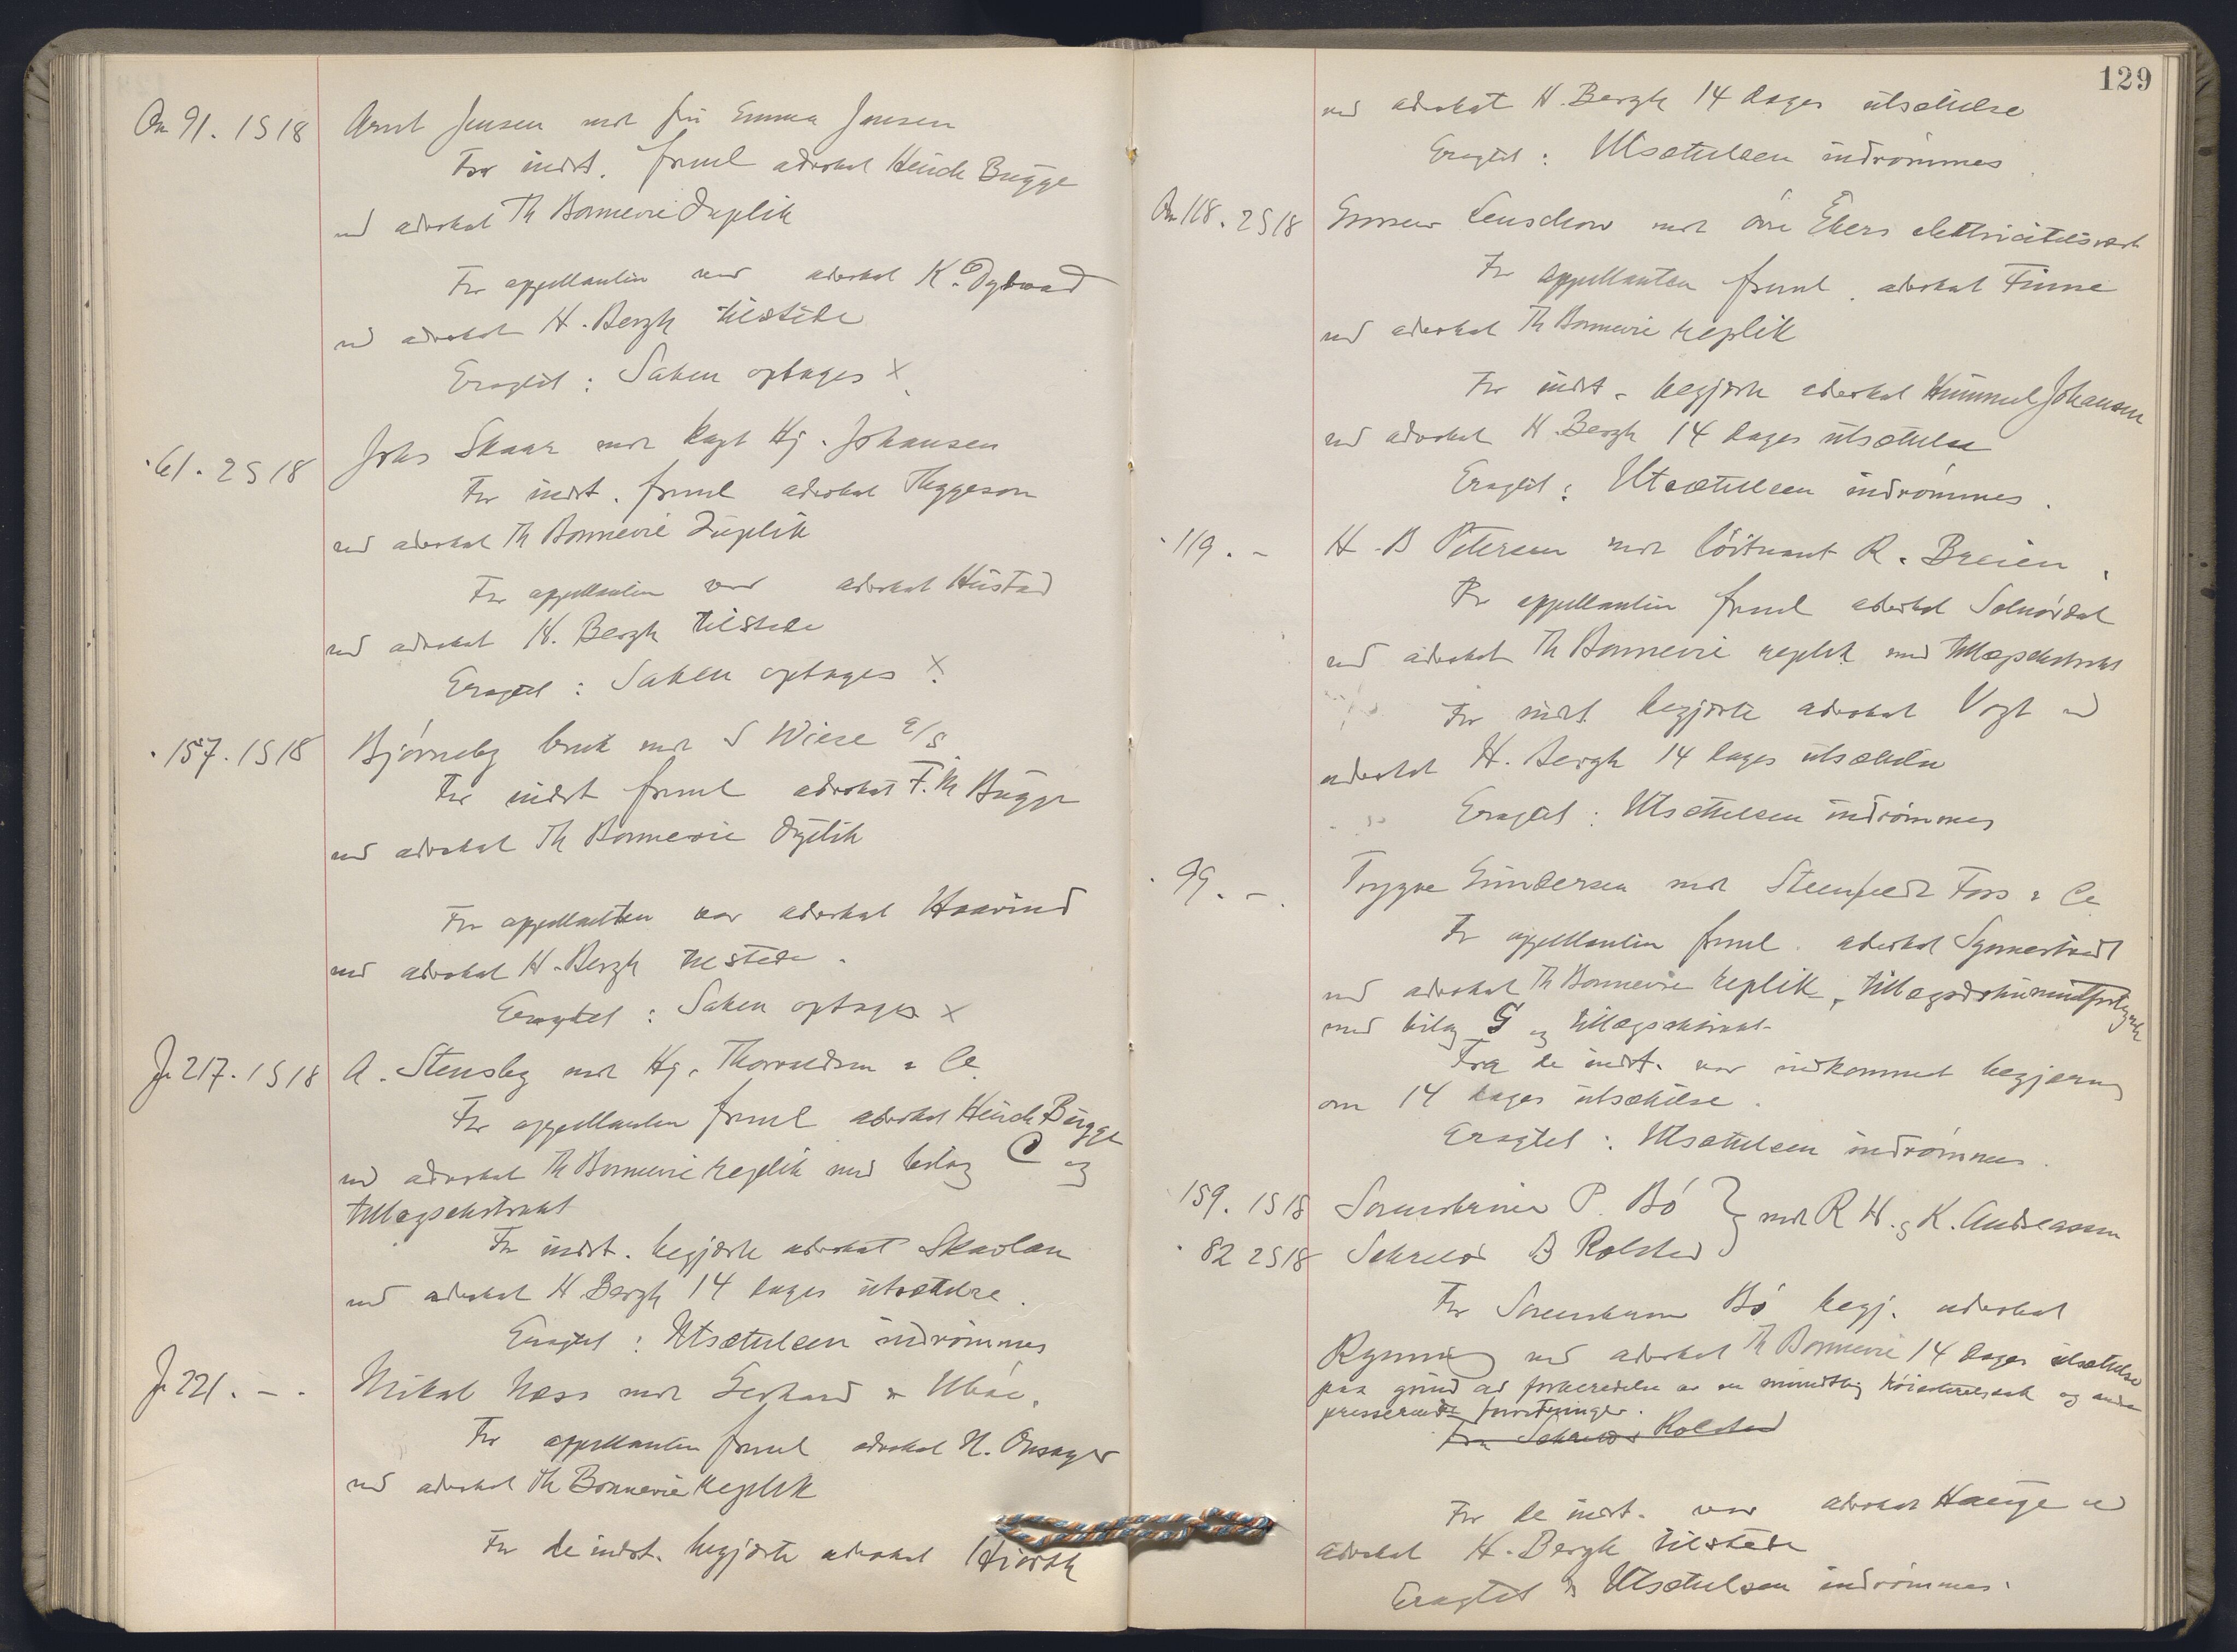 An 91. 1 S 18 Arnt Jensen mot fru Emma Jensen
For indst. freml advokat Henrik Bugge
ved advokat Th Bonnevie Duplik
For appellanten var advokat K. Dybwad
ved advokat H. Bergh tilstede
Eragtet: Saken optages x
" 61. 2 S 18 Johs Skaar mot kapt Hj. Johansen
For indst. freml advokat Heggeson
ved advokat Th Bonnevie Duplik
For appellanten var advokat Hustad
ved advokat H. Bergh tilstede
Eragtet: Saken optages x
" 157. 1 S 18 Bjørneby bruk mot S Wiese a/s
For indst freml advokat F. M Bugge
ved advokat Th Bonnevie Duplik
For appellanten var advokat Haavind
ved advokat H. Bergh tilstede.
Eragtet: Saken optages x
J. 217. 1 S 18 A. Stensby mot Hj. Thorvaldsen & Co
For appellanten freml advokat Henrik Bugge
ved advokat Th Bonnevie replik med bilag C og
tillægsekstrakt
For indst. begjærte advokat Skavlan
ved advokat H Bergh 14 dages utsættelse.
Eragtet: Utsættelsen indrømmes
J. 221. - . Mikal Næss mot Gerhard &
For appellanten freml advokat N. Onsager
ved advokat Th Bonnevie Replik
For de indst. begjærte advokat Hiorth
129
ved advokat H. Bergh 14 dages utsættelse
Eragtet: Utsættelsen indrømmes
An 118. 2 S 18 Leuschow mot øvre Ekers elektricitetsverk
For appellanten freml. advokat Finne
ved advokat Th Bonnevie replik
For indst. begjærte advokat Hummel Johansen
ved advokat H. Bergh 14 dages utsættelse
Eragtet: Utsættelsen indrømmes.
" 119. - H. B Petersen mot løitnant R. Breien.
For appellanten freml advokat Solnørdal
ved advokat Th Bonnevie replik med tillægsekstrakt
For indst begjærte advokat Vogt ved
advokat H. Bergh 14 dages utsættelse
Eragtet: Utsættelsen indrømmes
" 99. - . Trygve Gundersen mot Steenfeldt Foss & Co
For appellanten freml. advokat Synnestvedt
ved advokat Th Bonnevie replik, tillægsdokumentfortegnelse
med bilag G og tillægsekstrakt
Fra de indst. var indkommet begjæring
om 14 dages utsættelse.
Eragtet: Utsættelsen indrømmes.
159. 1 S 18 Sorenskriver P. Bø } mot R H. & K. Andreassen
" 82 2 S 18 B Rolsted
For Sorenskriver Bø begj. advokat
Rynning ved advokat Th Bonnevie 14 dages utsættelse
paa grund av forberedelse av en mundtlig høiesteretssak og andre
presserende forretninger.
Rolsted
For de indst. var advokat Hauge ved
advokat H. Bergh tilstede
Eragtet: Utsættelsen indrømmes.